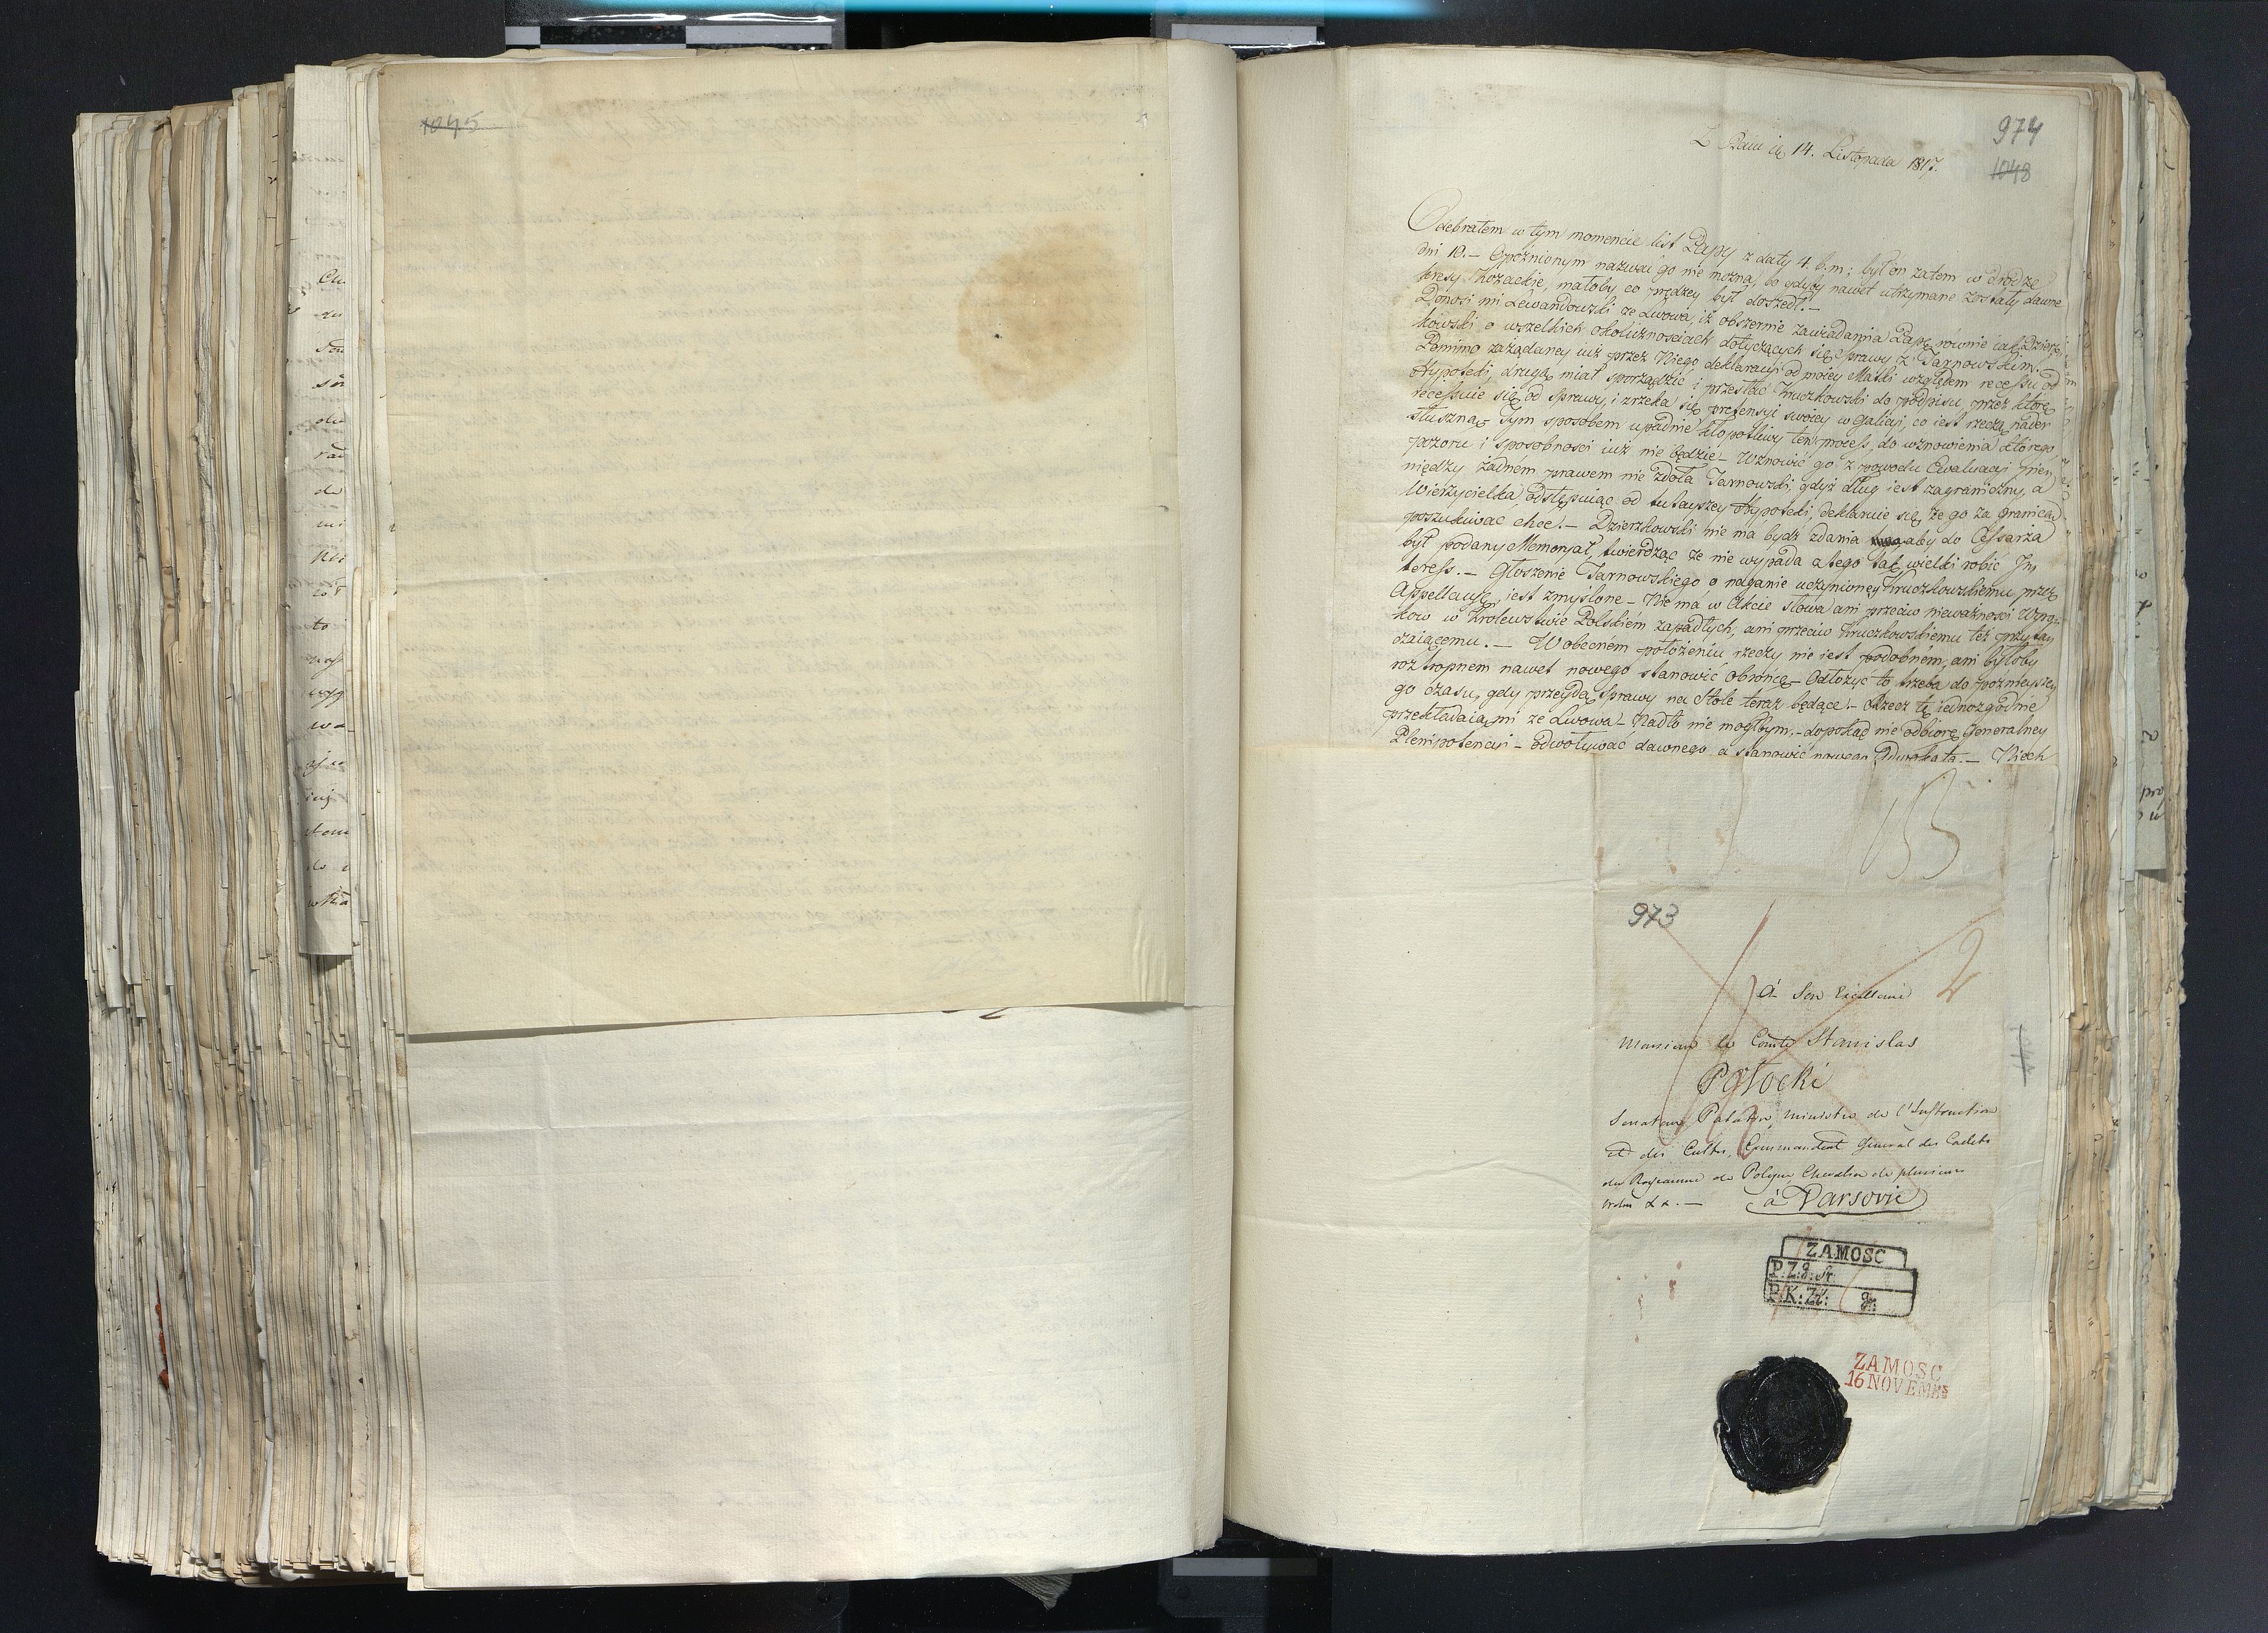 1045
974
1048
Z Bain d. 14. Listopada 1817.
Odebrałem w tym momencie list Papy z daty 4. b. m; był on zatem w drodze
dni 10. — Opóźnionym nazwać go nie można, bo gdyby nawet utrzymane zostały dawne
kresy Kozackie, małoby co prędzey był doszedł. —
Donosi mi Lewandowski ze Lwowa iż obszernie zawiadamia Papę równie iak Dzierz-
kowski o wszelkich okolicznościach dotyczących się sprawy z Tarnowskim.
Pomimo zażądaney iuż przez Niego deklaracyi od moiey Matki względem recessu od
Hypoteki, drugą miał sporządzić i przesłać Kruczkowski do podpisu, przez którą
recessuie się od sprawy, i zrzeka się pretensyi swoiey w Galicyi, co iest rzeczą nader
słuszną. Tym sposobem upadnie kłopotliwy ten process, do wznowienia którego
pozoru i sposobności iuż nie będzie — Wznowić go z powodu Ewaluacyi pien
niędzy żadnem prawem nie zdoła Tarnowski, gdyż dług iest zagraniczny, a
Wierzycielka, odstępuiąc od tuteyszey Hypoteki, deklaruie się, że go za granicą
poszukiwać chce. — Dzierzkowski nie ma bydź zdania aby do Cesarza
był podany Memoryał, twierdząc że nie wypada z tego tak wielki robić In
teress. — Głoszenie Tarnowskiego o naganie uczynioney Kruczkowskiemu przez
Appellacyą, iest zmyślone — Nie má w Akcie słowa ani przeciw nieważności Wyro-
ków w Królewstwie Polskiém zapadłych, ani przeciw Kruczkowskiemu też przytan
czaiącemu. — W obecném położeniu rzeczy nie iest podobném, ani byłoby
roztropnem nawet nowego stanowić obrońcę — Odłożyć to trzeba do poźnieysze
go czasu, gdy przeydą sprawy na stole teraz będące — Rzecz tę iednozgodnie
przekładaią mi ze Lwowa — Nadto nie mógłbym, — dopokąd nie odbiorę Generalney
Plenipotencyi — odwoływać dawnego a stanowić nowego Adwokata. — Niech
973
2
à Son Excellence
Monsieur le Comte Stanislas
Potocki
Senateur Palatin, Ministre de l'Instruction
et des Cultes, Commandant Général des Cadets
du Royaume de Pologne Chevalier de plusieurs
ordres &&. — à Varsovie
ZAMOSC
P.Z:g:śr.
P.K:Zł: gr:
ZAMOSC
16 NOVEMBS